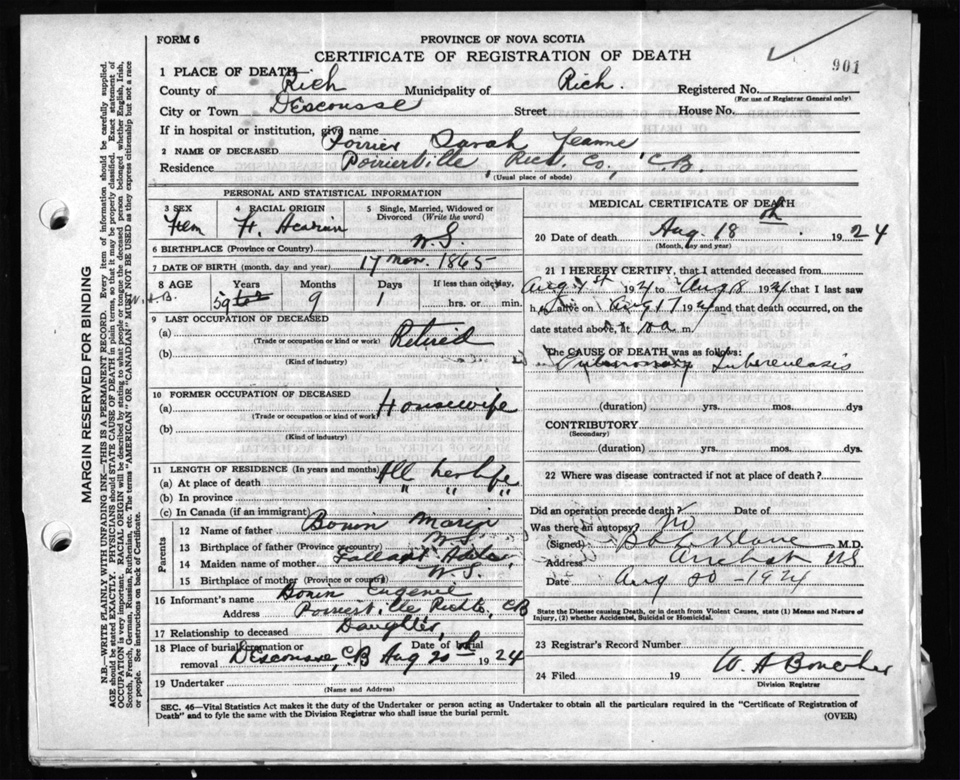 FORM 6
PROVINCE OF NOVA SCOTIA
CERTIFICATE OF REGISTRATION OF DEATH
901
1 PLACE OF DEATH
County of Rich Municipality of Rich. Registered No.
(For use of Registrar General only)
City or Town Descousse Street House No.
If in hospital or institution, give name
2 NAME OF DECEASED Poirier Sarah Jeanne
Residence Poirierville, Rich. Co., C.B.
(Usual place of abode)
PERSONAL AND STATISTICAL INFORMATION
3 SEX Fem
4 RACIAL ORIGIN Fr. Acadian
5 Single, Married, Widowed or Divorced (Write the word)
6 BIRTHPLACE (Province or Country) N.S.
7 DATE OF BIRTH (month, day and year) 17 Nov. 1865
8 AGE Years Months Days If less than one day
59 9 1 hrs. or min.
9 LAST OCCUPATION OF DECEASED
(a) Retired
(Trade or occupation or kind of work)
(b)
(Kind of industry)
10 FORMER OCCUPATION OF DECEASED
(a) Housewife
(Trade or occupation or kind of work)
(b)
(Kind of industry)
11 LENGTH OF RESIDENCE (In years and months)
(a) At place of death All her life
(b) In province " " "
(c) In Canada (if an immigrant)
Parents
12 Name of father Bonin
13 Birthplace of father (Province or country) N.S.
14 Maiden name of mother
15 Birthplace of mother (Province or country) N.S.
16 Informant's name Bonin Eugenie
Address Poirierville Rich Co, CB
17 Relationship to deceased Daughter
18 Place of burial, cremation or removal Descousse, C.B Date of burial Aug 20th 1924
19 Undertaker
(Name and Address)
MEDICAL CERTIFICATE OF DEATH
20 Date of death Aug. 18th, 1924
(Month, day and year)
21 I HEREBY CERTIFY, that I attended deceased from
Aug 1st 1924 to Aug 18 1924 that I last saw
h alive on Aug 17 1924 and that death occurred, on the
date stated above, at 10 a m
The CAUSE OF DEATH was as follows:
Pulmonary Tuberculosis
(duration) yrs. mos. dys
CONTRIBUTORY
(Secondary)
(duration) yrs. mos. dys.
22 Where was disease contracted if not at place of death?
Did an operation precede death? Date of
Was there an autopsy? No
(Signed) M.D.
Address Arichat NS
Date Aug 20 - 1924
State the Disease causing Death, or in death from Violent Causes, state (1) Means and Nature of Injury, (2) whether Accidental, Suicidal or Homicidal.
23 Registrar's Record Number
24 Filed 19 W. A
Division Registrar
SEC. 46—Vital Statistics Act makes it the duty of the Undertaker or person acting as Undertaker to obtain all the particulars required in the "Certificate of Registration of
Death" and to fyle the same with the Division Registrar who shall issue the burial permit.
(OVER)
MARGIN RESERVED FOR BINDING
N.B.—WRITE PLAINLY WITH UNFADING INK—THIS IS A PERMANENT RECORD. Every item of information should be carefully supplied.
AGE should be stated EXACTLY. PHYSICIANS should STATE CAUSE OF DEATH in plain terms, so that it may be properly classified. Exact statement of
OCCUPATION is very important. RACIAL ORIGIN will be described by stating to what people or tongue the deceased person belonged whether English, Irish,
Scotch, French, German, Russian, Ruthenian, etc. The terms "AMERICAN" OR "CANADIAN" MUST NOT BE USED as they express citizenship but not a race
or people. See instructions on back of Certificate.